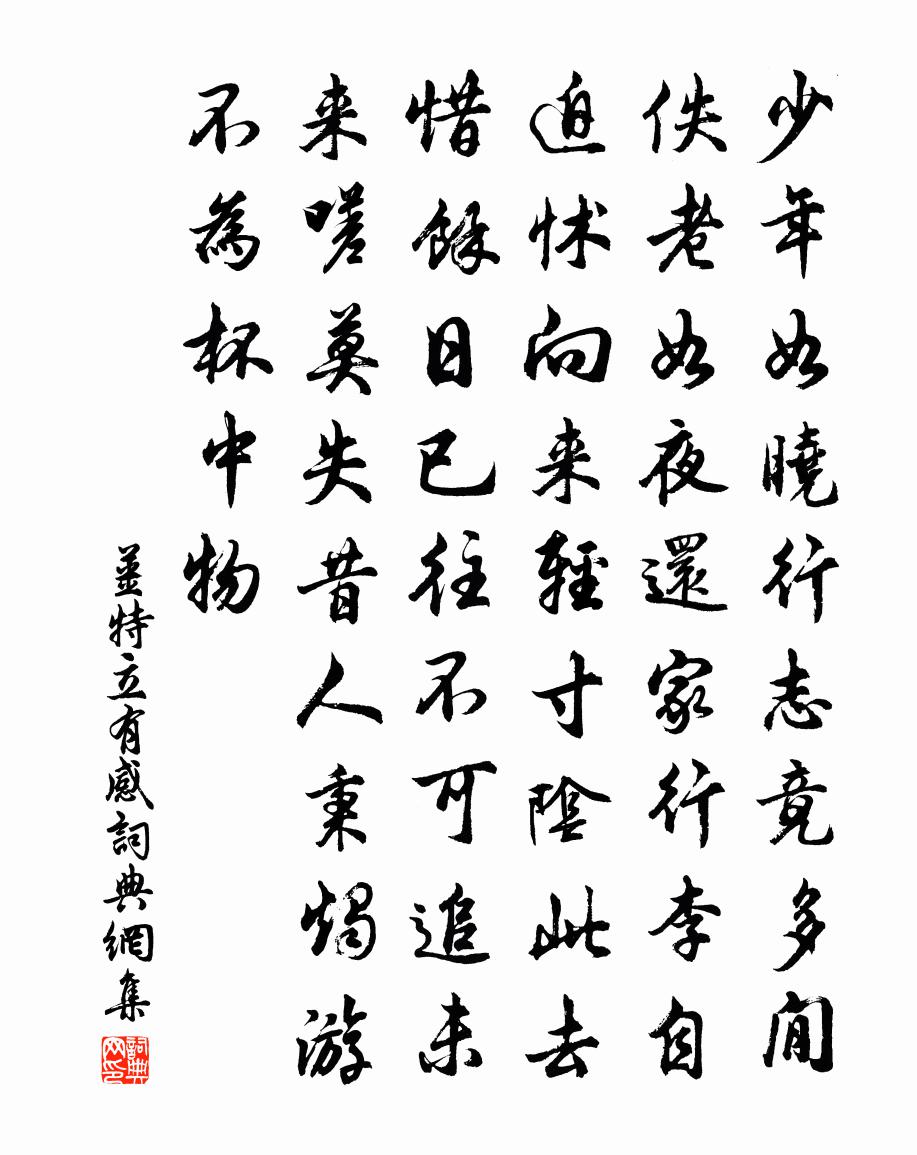 少年如曉行志竟多閒
佚老如夜還家行李自
迫怵向来輕寸陰此去
惜餘日已往不可追未
来嗟莫失昔人秉燭游
不為杯中物
薑特立有感詞典網集
詞典网印